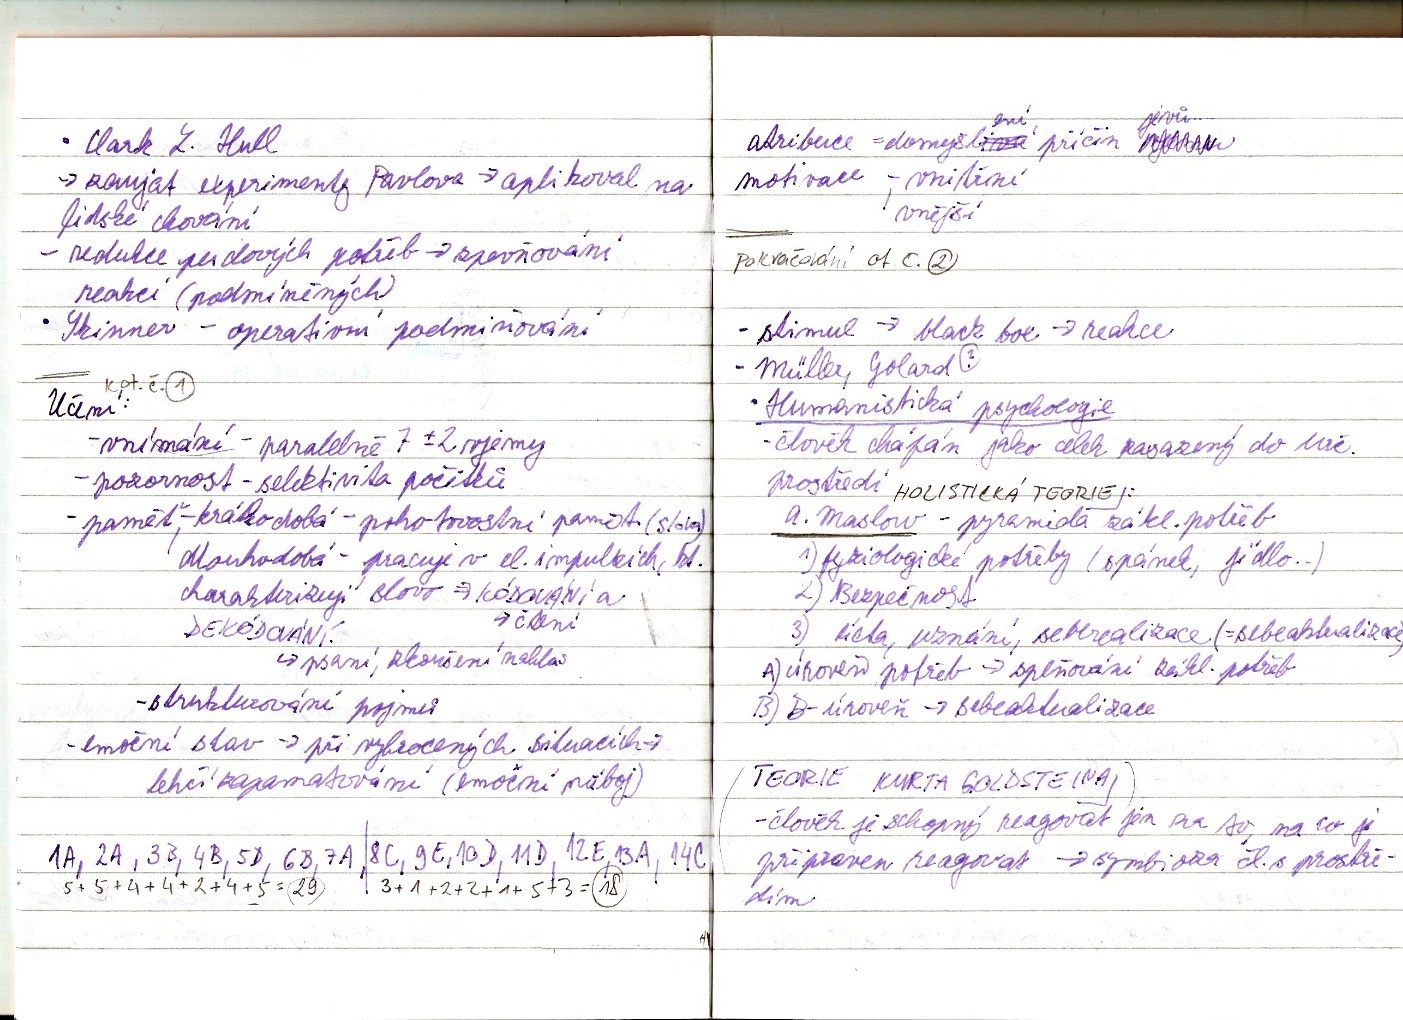 • Clark L. Hull
→ zaujat experimenty Pavlova → aplikoval na
lidské chování
– redukce pudových potřeb → zpevňování
reakcí (podmíněných)
• Skinner – operativní podmiňování
k ot. č. 1
Učení:
– vnímání – paralelně 7 ± 2 vjemy
– pozornost – selektivita počitků
– paměť – krátkodobá – pohotovostní paměť (slova)
dlouhodobá – pracuje v el. impulsích, kt.
charakterizují slovo → KÓDOVÁNÍ a
→ čtení
DEKÓDOVÁNÍ
↳ psaní, zkoušení nahlas
– strukturování pojmů
– emoční stav → při vybočených situacích →
lehčí zapamatování (emoční náboj)
1A, 2A, 3B, 4B, 5D, 6B, 7A | 8C, 9E, 10D, 11D, 12E, 13A, 14C
5+5+4+4+2+4+5=29 3+1+2+2+1+5+3=18
atribuce = domýšlení příčin jevů
motivace – vnitřní
vnější
Pokračování ot. č. 2
– stimul → black box → reakce
– Müller, Golard ?
• Humanistická psychologie
– člověk chápán jako celek zasazený do urč.
prostředí HOLISTICKÁ TEORIE:
A. Maslow – pyramida zákl. potřeb
1) fyziologické potřeby (spánek, jídlo..)
2) Bezpečnost
3) úcta, uznání, seberealizace (=sebeaktualizace)
A) úroveň potřeb → splňování zákl. potřeb
B) B-úroveň → sebeaktualizace
(TEORIE KURTA GOLDSTEINA)
– člověk je schopný reagovat jen na to, na co je
připraven reagovat → symbióza čl. s prostře-
dím